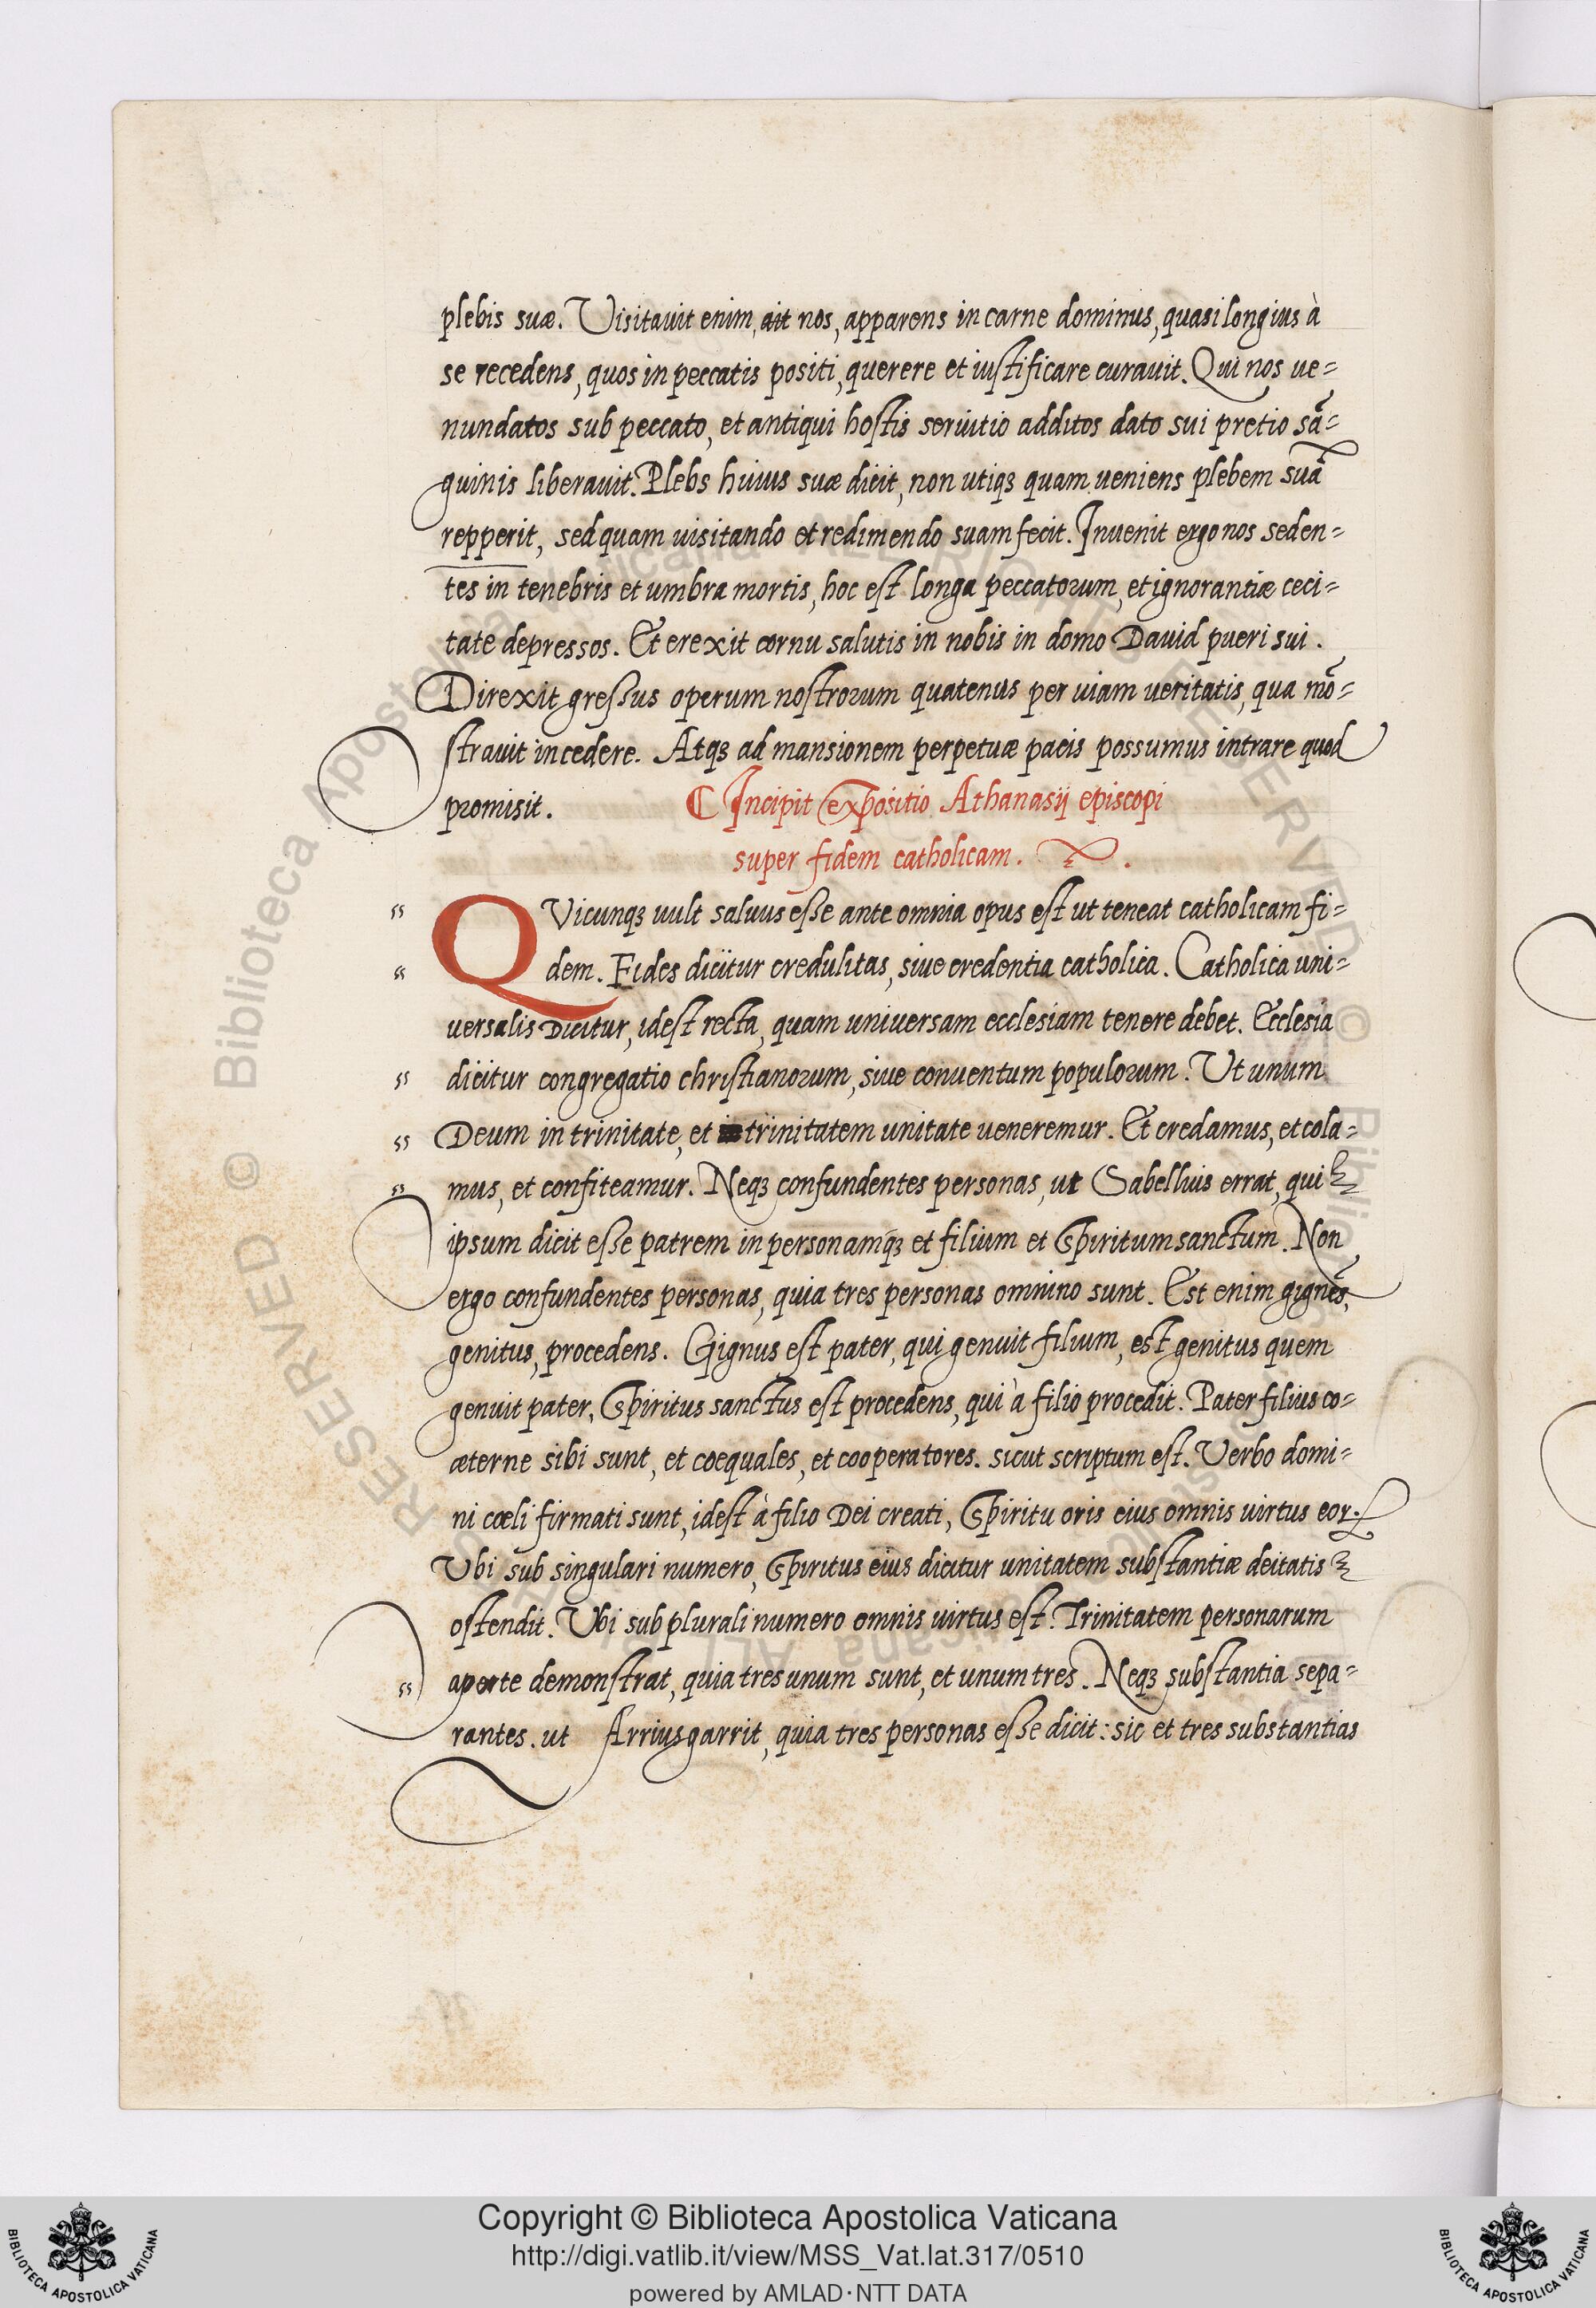 plebis suæ. Visitauit enim, ait nos, apparens in carne dominus, quasi longius à
se recedens, quos in peccatis positi, querere et iustificare curauit. Qui nos ue=
nundatos sub peccato, et antiqui hostis seruitio additos dato sui pretio sã=
guinis liberauit. Plebs huius suæ dicit, non utiqꝫ quam ueniens plebem suã
repperit, sed quam uisitando et redimendo suam fecit. Inuenit ergo nos seden=
tes in tenebris et umbra mortis, hoc est longa peccatorum, et ignorantiæ ceci=
tate depressos. Et erexit cornu salutis in nobis in domo Dauid pueri sui.
Direxit gressus operum nostrorum quatenus per uiam ueritatis, qua mõ=
strauit incedere. Atqꝫ ad mansionem perpetuæ pacis possumus intrare quod
promisit. ⸿ Incipit expositio Athanasij episcopi
super fidem catholicam.
QVicunqꝫ uult saluus esse ante omnia opus est ut teneat catholicam fi=
dem. Fides dicitur credulitas, siue credentia catholica. Catholica uni=
uersalis dicitur, idest recta, quam uniuersam ecclesiam tenere debet. Ecclesia
dicitur congregatio christianorum, siue conuentum populorum. Ut unum
Deum in trinitate, et trinitatem unitate ueneremur. Et credamus, et cola=
mus, et confiteamur. Neqꝫ confundentes personas, ut Sabellius errat, qui
ipsum dicit esse patrem in personamqꝫ et filium et Spiritum sanctum. Non
ergo confundentes personas, quia tres personas omnino sunt. Est enim gignẽs,
genitus, procedens. Gignus est pater, qui genuit filium, est genitus quem
genuit pater, Spiritus sanctus est procedens, qui à filio procedit. Pater filius co=
æterne sibi sunt, et coequales, et cooperatores. sicut scriptum est. Verbo domi=
ni cœli firmati sunt, idest à filio Dei creati, Spiritu oris eius omnis uirtus eoꝝ.
Vbi sub singulari numero, Spiritus eius dicitur unitatem substantiæ deitatis
ostendit. Vbi sub plurali numero omnis uirtus est. Trinitatem personarum
aperte demonstrat, quia tres unum sunt, et unum tres. Neqꝫ substantia sepa=
rantes. ut Arrius garrit, quia tres personas esse dicit: sic et tres substantias
Copyright © Biblioteca Apostolica Vaticana
http://digi.vatlib.it/view/MSS_Vat.lat.317/0510
powered by AMLAD·NTT DATA
BIBLIOTECA APOSTOLICA VATICANA
BIBLIOTECA APOSTOLICA VATICANA